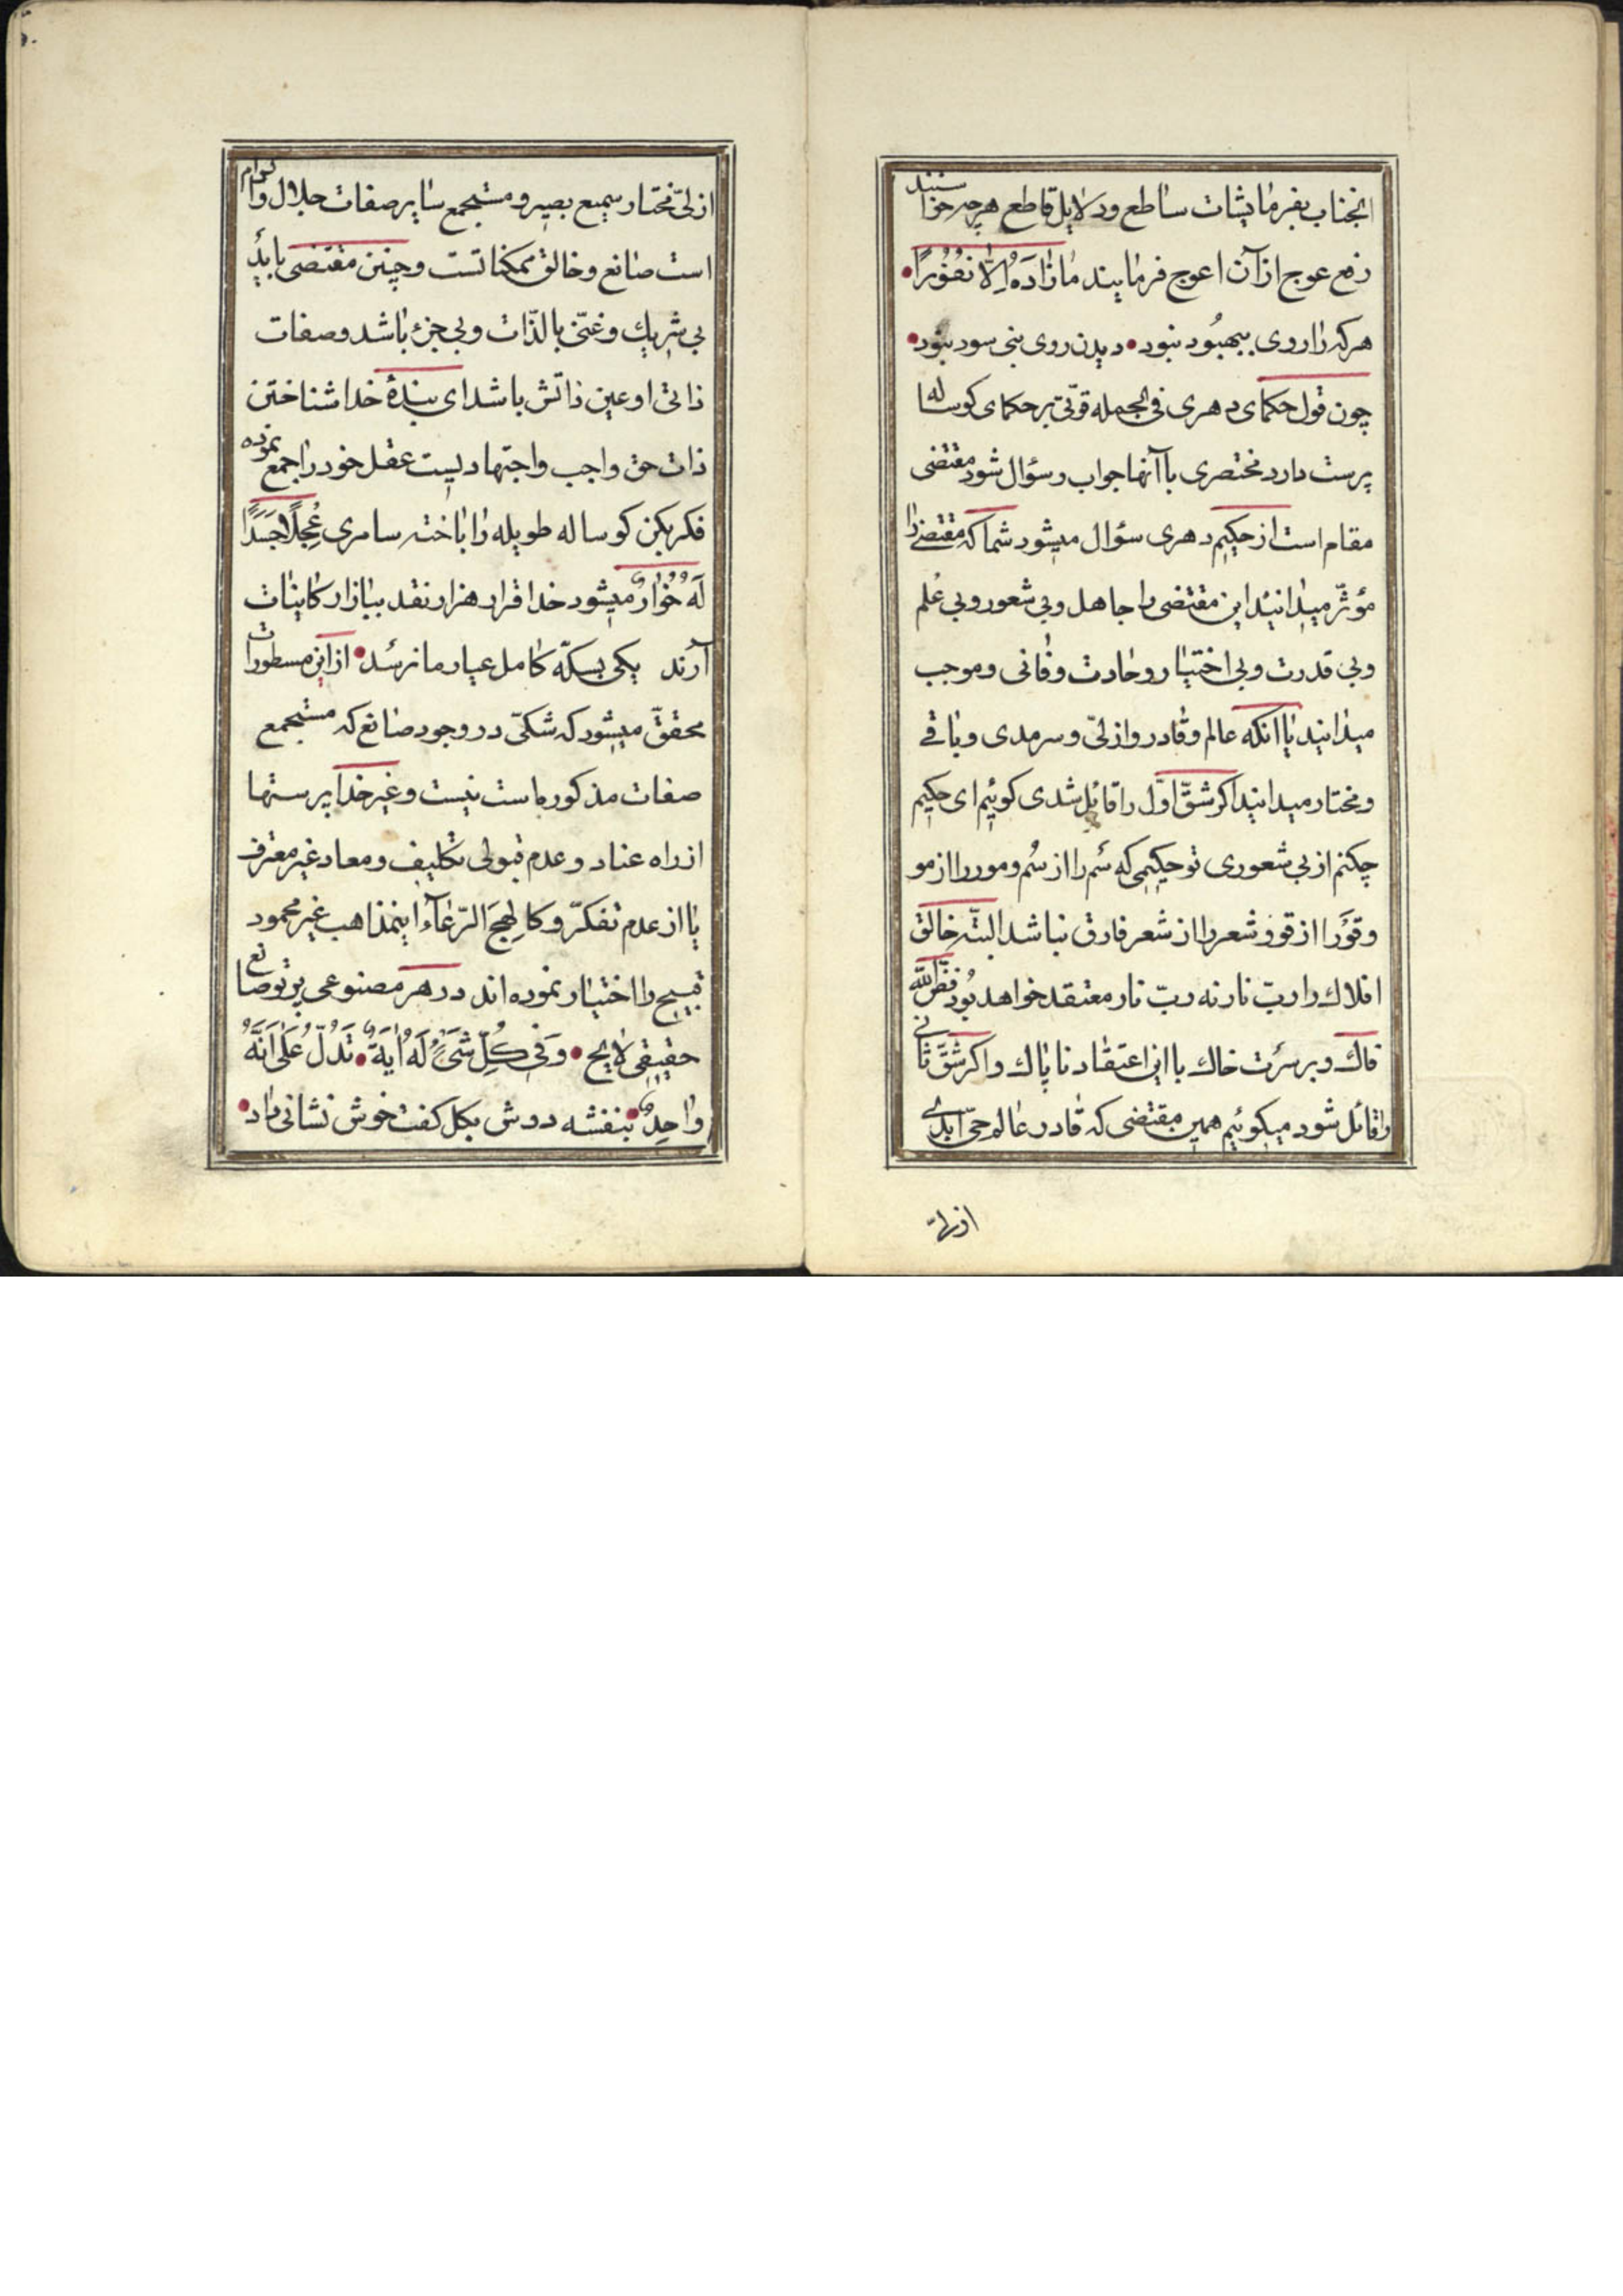 انجناب بفرمایشات ساطع ودلایل قاطع هرچه خواستند
رفع عوج از آن اعوج فرمایند مٰا زٰادَهُ اِلّٰا نُفُوراً
هرکه را روی ببهبُود نبود دیدن روی نبی سود نبود
چون قول حکمای دهری فی الجمله قوّتی بر حکمای کوساله
پرست دارد مختصری با آنها جواب وسؤال شود مقتضی
مقام است از حکیم دهری سؤال میشود شما که مقتضی را
مؤثّر میدانید این مقتضی را جاهل وبی شعور وبی علم
وبی قدرت وبی اختیار وحادث وفانی وموجب
میدانید یا انکه عالم وقادر وازلیّ وسرمدی وباقی
ومختار میدانید اکر شقّ اوّل را قائل شدی کوئیم ای حکیم
چکنم از بی شعوری تو حکیمی که سَم را از سُم ومور را از مو
وقوَرا از قوو شعر را از شعر فارق نباشد البتّه خالق
افلاك را ربّ نار نه ربّ نار معتقد خواهد بُود فضّ اللّه
فاك وبر سرَت خاك با این اعتقاد ناپاك واکر شقّ ثانی
را قائل شود میکوئیم همین مقتضی که قادر عالم حیّ ابدی
ازلیّ
ازلیّ مختار سمیع بصیر و مستجمع سایر صفات جلال واکرام
است صانع وخالق ممکناتست وچنین مقتضی باید
بی شریك وغنیّ بالذّات وبی جزء باشد وصفات
ذاتی او عین ذاتش باشد ای بندهٔ خدا شناختن
ذات حق واجب واجتهادیست عقل خود را جمع نموده
فکر بکن کوساله طویله را باخته سامری عِجلًا جَسَدًا
لَهُ خُوارٌ میشود خدا قرار هزار نقد ببازار کاینات
آرند یکی بسکّه کامل عیار ما نرسد از این مسطورات
محققّ میشود که شکیّ در وجود صانع که مستجمع
صفات مذکوره است نیست وغیر خدا پرستها
از راه عناد وعدم قبولی تکلیف ومعاد غیر معترف
یا از عدم تفکرّ وکالهمج الرّعاء اینمذاهب غیر محمود
قبیح را اختیار نموده اند در هر مصنوعی پرتو صانع
حقیقی لایح وَفی کُلِّ شَیءٍ لَهُ اٰیَةٌ تَدُلُّ عَلیٰ اَنَّهُ
وٰاحِدٌ بنفشه دوش بکل کفت خوش نشانی داد